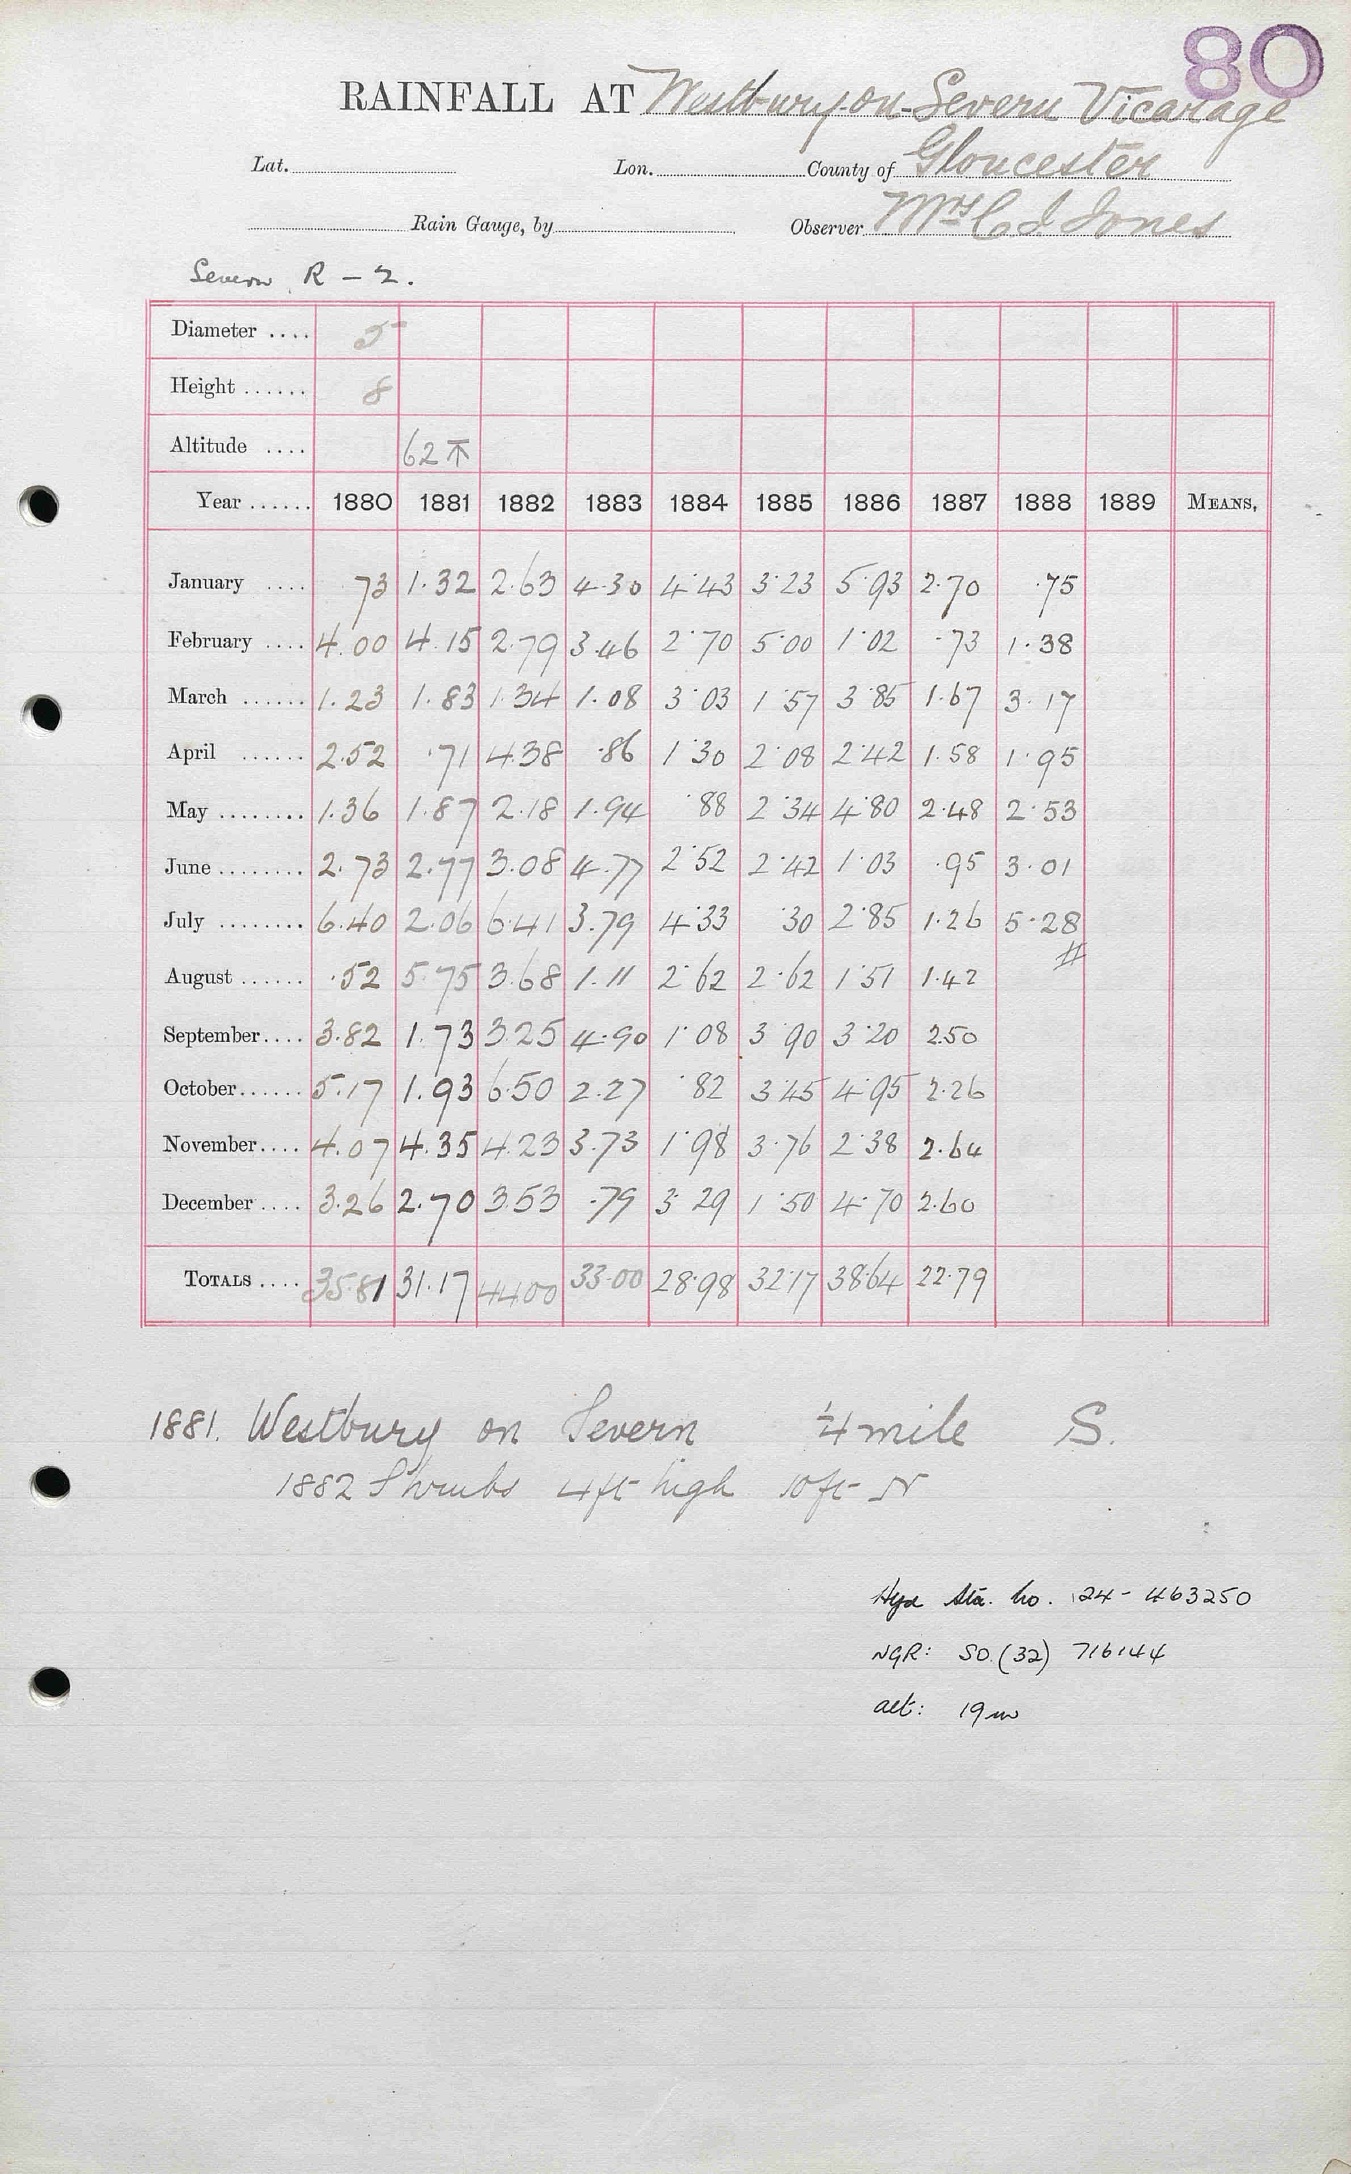 80
RAINFALL AT Westbury-on-Severn Vicarage
Lat. Lon. County of Gloucester
Rain Gauge, by Observer Mrs C J Jones
Severn R – 2.
Diameter .... 5
Height ...... 8
Altitude .... 62
Year ...... 1880 1881 1882 1883 1884 1885 1886 1887 1888 1889 MEANS,
January .... 73 1.32 2.63 4.30 4.43 3.23 5.93 2.70 .75
February .... 4.00 4.15 2.79 3.46 2.70 5.00 1.02 .73 1.38
March ...... 1.23 1.83 1.34 1.08 3.03 1.57 3.85 1.67 3.17
April ...... 2.52 .71 4.38 .86 1.30 2.08 2.42 1.58 1.95
May ........ 1.36 1.87 2.18 1.94 .88 2.34 4.80 2.48 2.53
June ........ 2.73 2.77 3.08 4.77 2.52 2.42 1.03 .95 3.01
July ........ 6.40 2.06 6.41 3.79 4.33 .30 2.85 1.26 5.28
#
August ...... .52 5.75 3.68 1.11 2.62 2.62 1.51 1.42
September.... 3.82 1.73 3.25 4.90 1.08 3.90 3.20 2.50
October...... 5.17 1.93 6.50 2.27 .82 3.45 4.95 2.26
November.... 4.07 4.35 4.23 3.73 1.98 3.76 2.38 2.64
December .... 3.26 2.70 3.53 .79 3.29 1.50 4.70 2.60
TOTALS .... 35.81 31.17 44.00 33.00 28.98 32.17 38.64 22.79
1881. Westbury on Severn ¼ mile S.
1882 Shrubs 4ft high 10ft N
Hyd Sta. No. 24-463250
NGR: SO.(32) 716144
alt: 19m